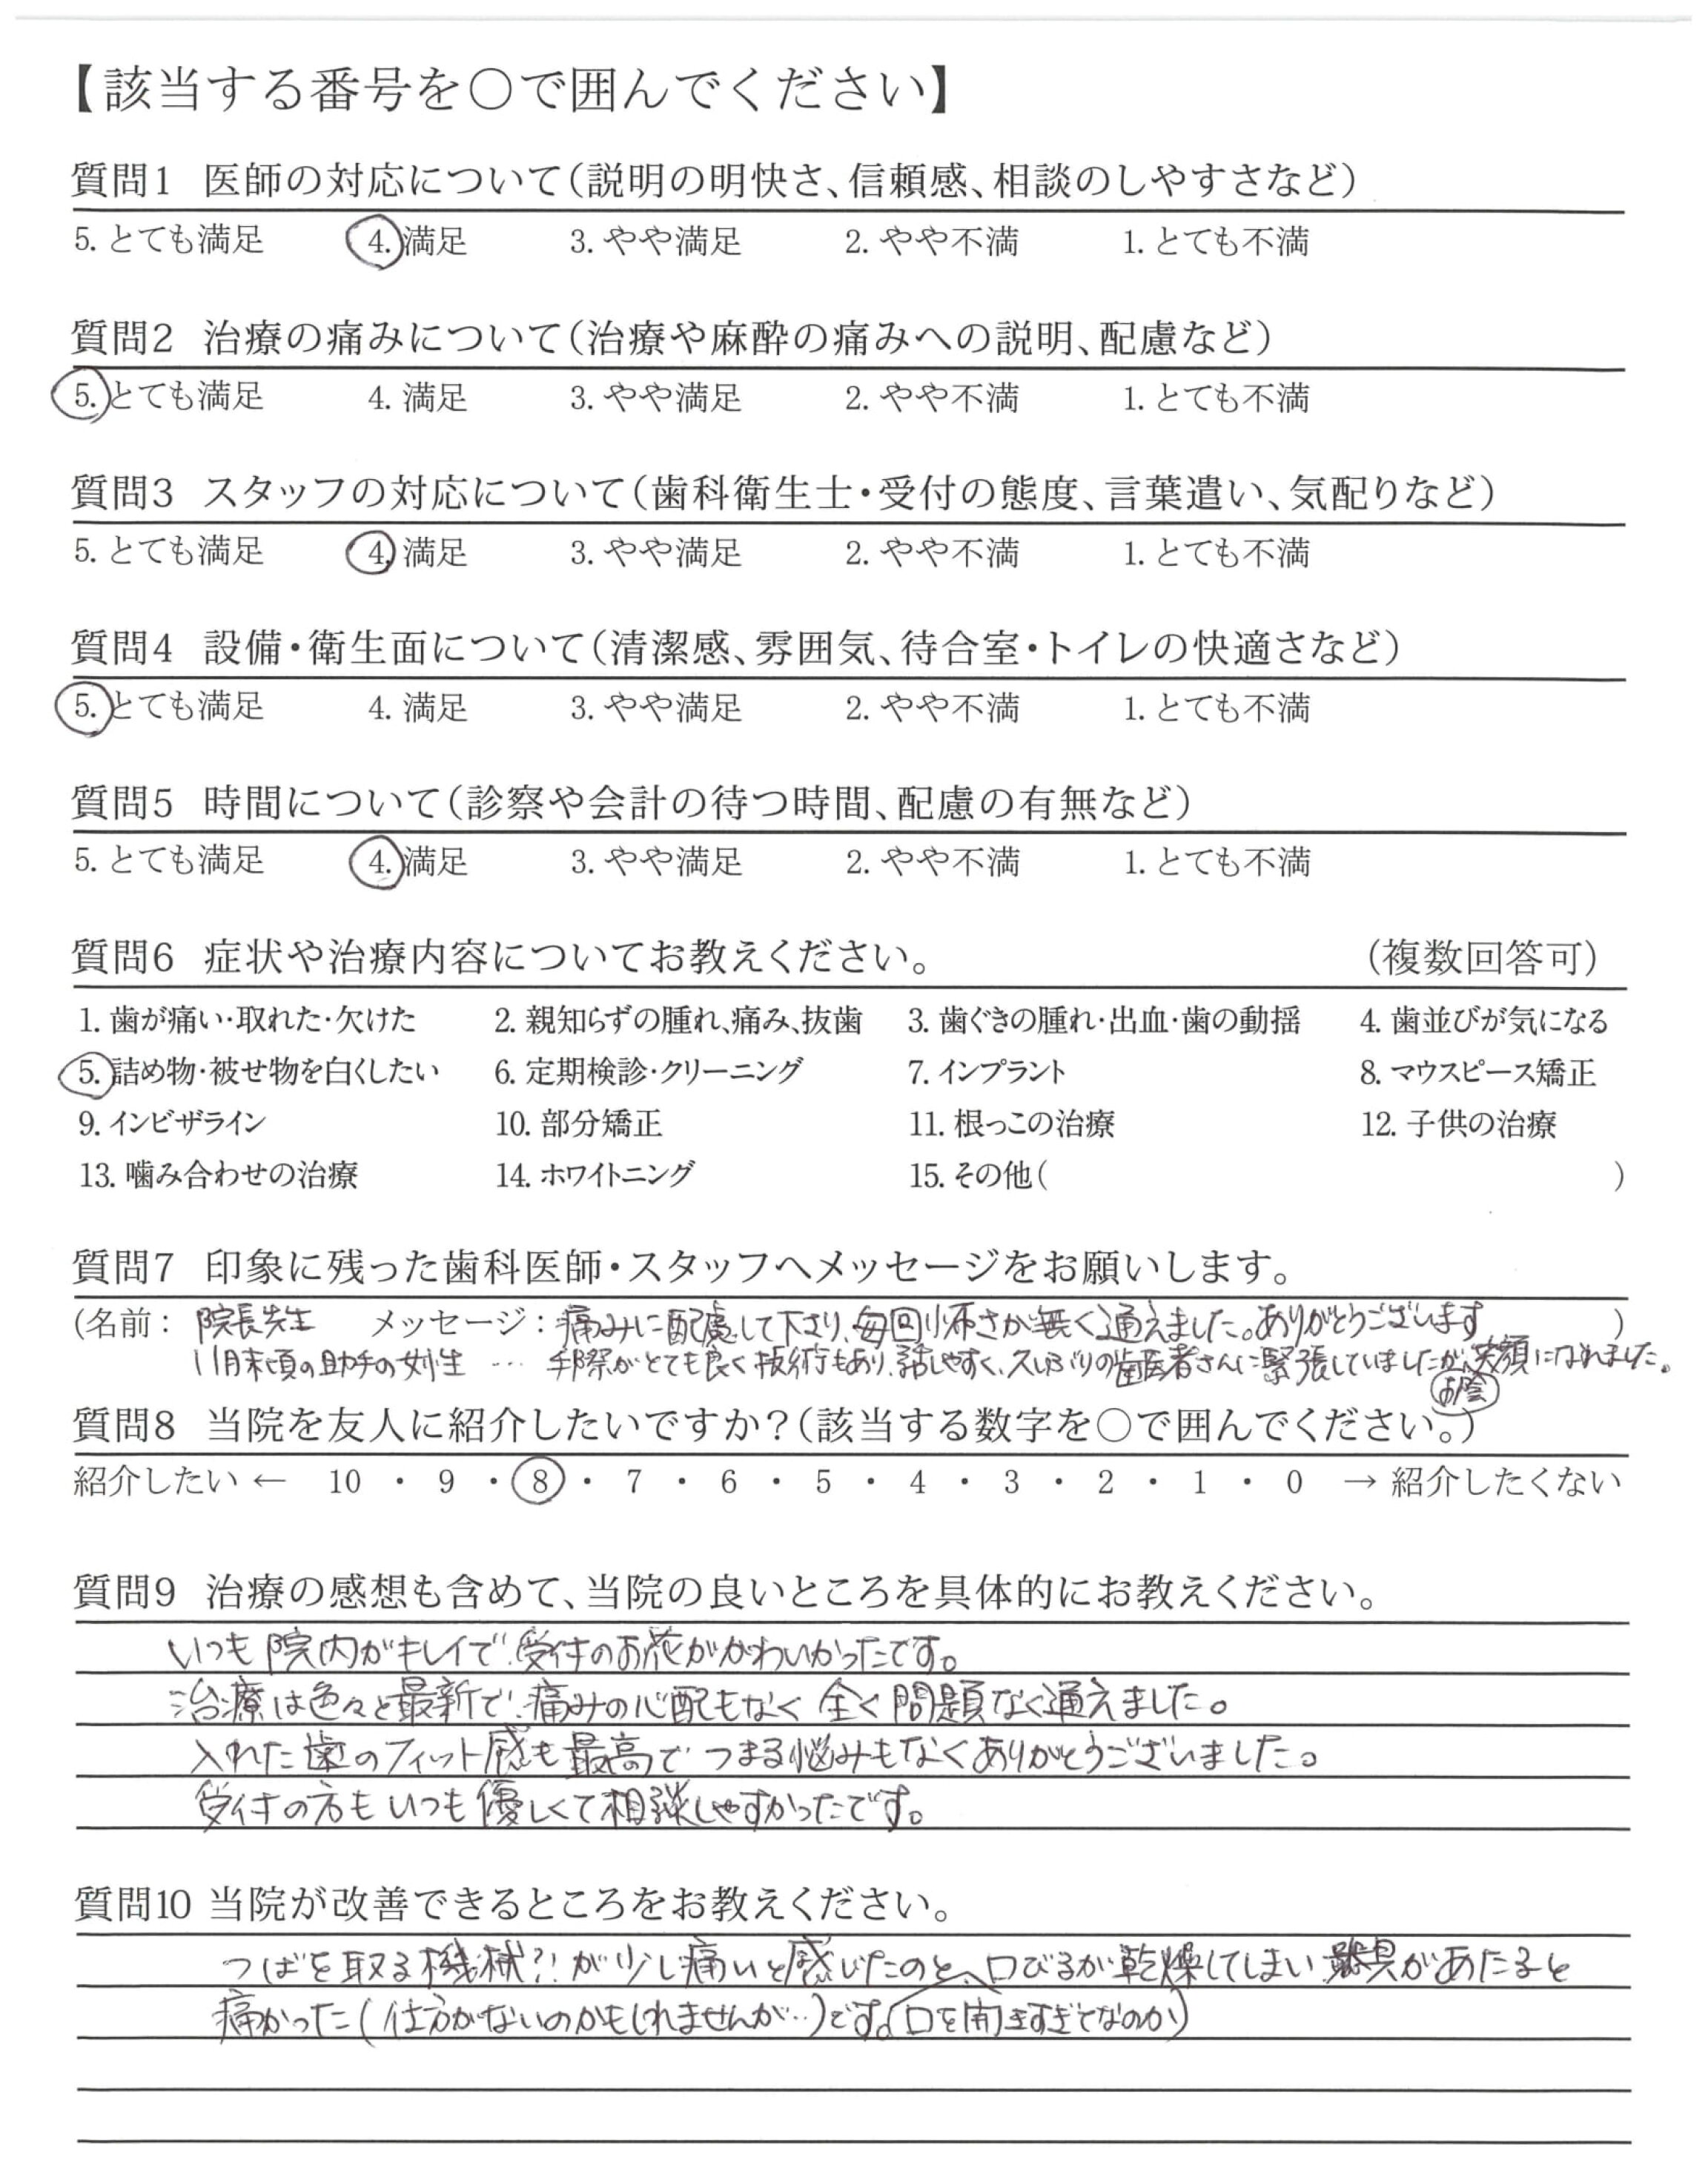 【該当する番号を○で囲んでください】
質問1 医師の対応について(説明の明快さ、信頼感、相談のしやすさなど)
5. とても満足 4. 満足 3. やや満足 2. やや不満 1. とても不満
質問2 治療の痛みについて(治療や麻酔の痛みへの説明、配慮など)
5. とても満足 4. 満足 3. やや満足 2. やや不満 1. とても不満
質問3 スタッフの対応について(歯科衛生士・受付の態度、言葉遣い、気配りなど)
5. とても満足 4. 満足 3. やや満足 2. やや不満 1. とても不満
質問4 設備・衛生面について(清潔感、雰囲気、待合室・トイレの快適さなど)
5. とても満足 4. 満足 3. やや満足 2. やや不満 1. とても不満
質問5 時間について(診察や会計の待つ時間、配慮の有無など)
5. とても満足 4. 満足 3. やや満足 2. やや不満 1. とても不満
質問6 症状や治療内容についてお教えください。 (複数回答可)
1. 歯が痛い・取れた・欠けた 2. 親知らずの腫れ、痛み、抜歯 3. 歯ぐきの腫れ・出血・歯の動揺 4. 歯並びが気になる
5. 詰め物・被せ物を白くしたい 6. 定期検診・クリーニング 7. インプラント 8. マウスピース矯正
9. インビザライン 10. 部分矯正 11. 根っこの治療 12. 子供の治療
13. 噛み合わせの治療 14. ホワイトニング 15. その他( )
質問7 印象に残った歯科医師・スタッフへメッセージをお願いします。
(名前: 院長先生 メッセージ: 痛みに配慮して下さり、毎回怖さが無く通えました。ありがとうございます )
11月末頃の助手の女性 … 手際がとても良く技術もあり、話しやすく、久しぶりの歯医者さんに緊張していましたが、笑顔になれました。
お陰
質問8 当院を友人に紹介したいですか?(該当する数字を○で囲んでください。)
紹介したい ← 10 ・ 9 ・ 8 ・ 7 ・ 6 ・ 5 ・ 4 ・ 3 ・ 2 ・ 1 ・ 0 → 紹介したくない
質問9 治療の感想も含めて、当院の良いところを具体的にお教えください。
いつも院内がキレイで、受付のお花がかわいかったです。
治療は色々と最新で、痛みの心配もなく 全く問題なく通えました。
入れた歯のフィット感も最高で つまる悩みもなくありがとうございました。
受付の方もいつも優しくて相談しやすかったです。
質問10 当院が改善できるところをお教えください。
つばを取る機械?! が少し痛いと感じたのと、口びるが乾燥してしまい 器具があたると
痛かった(仕方がないのかもしれませんが…)です。(口を開きすぎてなのか)